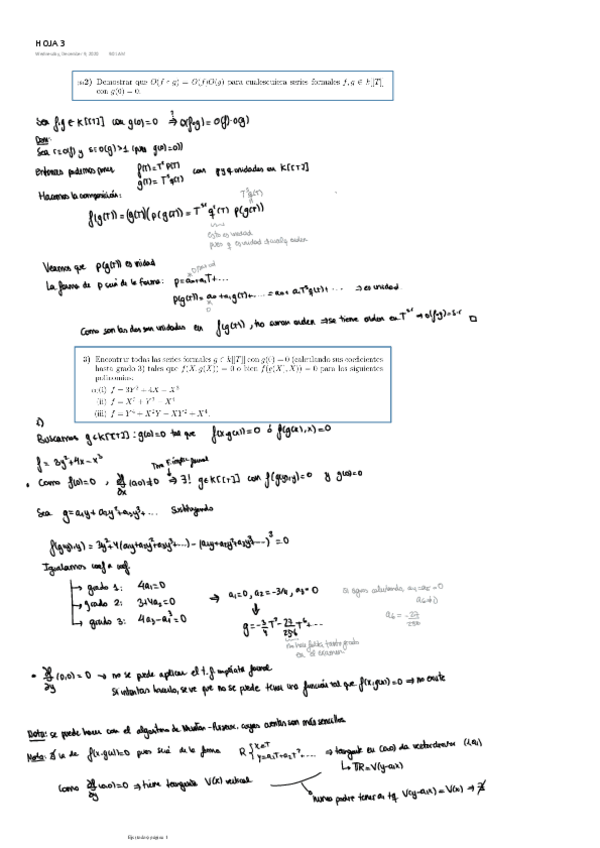 HOJA 3
Wednesday, December 9, 2020
2) Demostrar que O(f ∘ g) = O(f)O(g) para cualesquiera series formales f, g ∈ k[[T]],
con g(0) = 0.
Sea f,g ∈ K[[T]] con g(0)=0 ⇒ O(f∘g)=O(f)·O(g)
Sea r=O(f) y s=O(g)≥1 (pues g(0)=0)
Entonces podemos poner f(T)=T^r p(T)
g(T)=T^s q(T)
con p y q unidades en K[[T]]
Hacemos la composición:
T^s q(T)
f(g(T))=(g(T))^r p(g(T)) = T^{sr} q^r(T) p(g(T))
esto es unidad
pues q es unidad
Veamos que p(g(T)) es unidad
La forma de p será de la forma: p=a₀+a₁T+...
p(g(T))=a₀+a₁g(T)+...=a₀+a₁T^s q(T)+... ⇒ es unidad
Como son las dos unidades en f(g(T)), no suman orden ⇒ se tiene orden en T^{sr} ⇒ O(f∘g)=s·r □
3) Encontrar todas las series formales g ∈ k[[T]] con g(0) = 0 (calculando sus coeficientes
hasta grado 3) tales que f(X, g(X)) = 0 o bien f(g(X), X)) = 0 para los siguientes
polinomios:
(i) f = 3Y² + 4X − X³
(ii)
(iii)
i)
Buscamos g∈K[[T]] : g(0)=0 tal que f(x,g(x))=0 ó f(g(x),x)=0
f = 3y²+4x−x³
• Como f(0)=0, ∂f/∂x (0,0)≠0 ⇒ ∃! g∈K[[T]] con f(g(y),y)=0 y g(0)=0
Sea g=a₁y+a₂y²+a₃y³+... Sustituyendo
f(g(y),y)=3y²+4(a₁y+a₂y²+a₃y³+...)−(a₁y+a₂y²+a₃y³+...)³=0
Igualamos coef a coef.
grado 1: 4a₁=0
grado 2: 3+4a₂=0
grado 3: 4a₃−a₁³=0
⇒ a₁=0, a₂=−3/4, a₃=0
g=−3/4 T²−27/256 T⁶+...
Si sigues calculando, a₄=a₅=0
a₆≠0
a₆=−27/256
no hace falta
en el examen
• ∂f/∂y (0,0)=0 → no se puede aplicar el t. f implícita formal
Si intentas hacerlo, se ve que no se puede tener una función tal que f(x,g(x))=0 ⇒ no existe
Nota: se puede hacer con el algoritmo de Newton-Puiseux, cuyas cuentas son más sencillas
Nota: f(x,g(x))=0 pues será de la forma R {x=T
y=a₁T+a₂T²+...
⇒ tangente en (0,0) da vector director (1,a₁)
↳ TR=V(y−a₁x)
Como ∂f/∂y (0,0)=0 ⇒ tiene tangente V(x) vertical
nunca podré tener a₁ tq V(y−a₁x)=V(x) → ∄
Ejercicios página 1